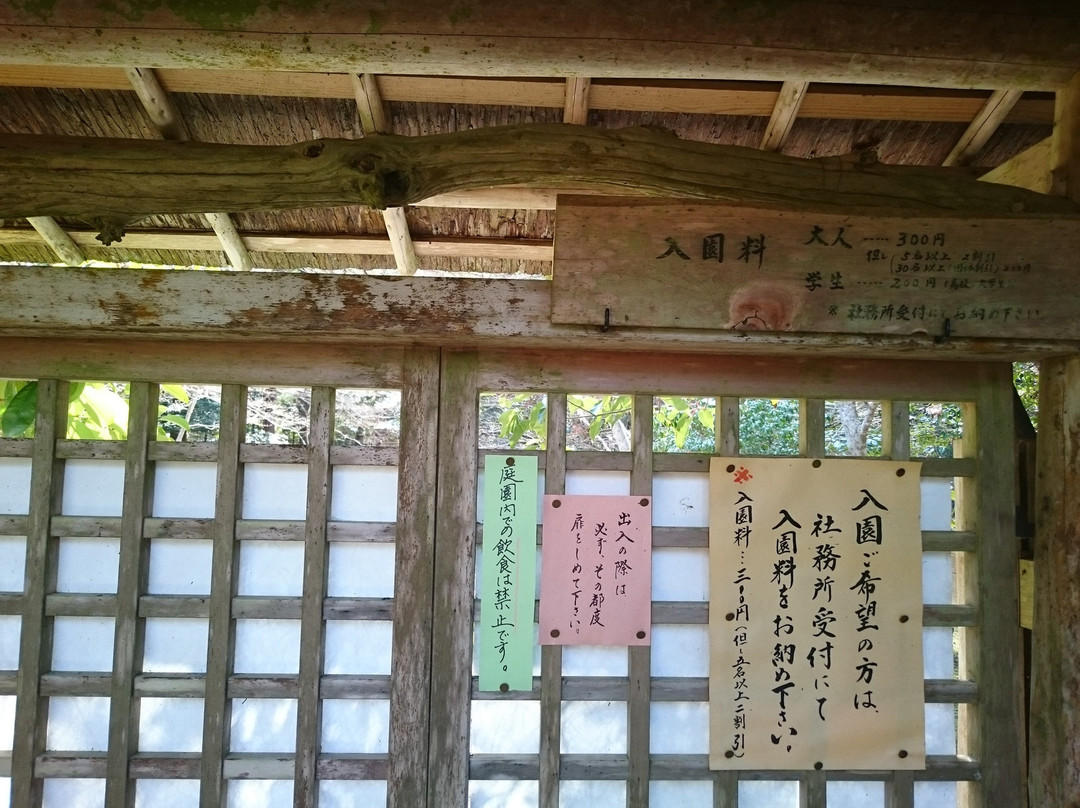 入園料
大人 ----- 300円
但し
5名以上 2割引
30名以上
学生 ----- 200円
※ 社務所受付にてお納め下さい
庭園内での飲食は禁止です。
出入の際は
必ず、その都度
扉をしめて下さい。
入園ご希望の方は、
社務所受付にて
入園料をお納め下さい。
入園料…三〇〇円(但し五名以上二割引)